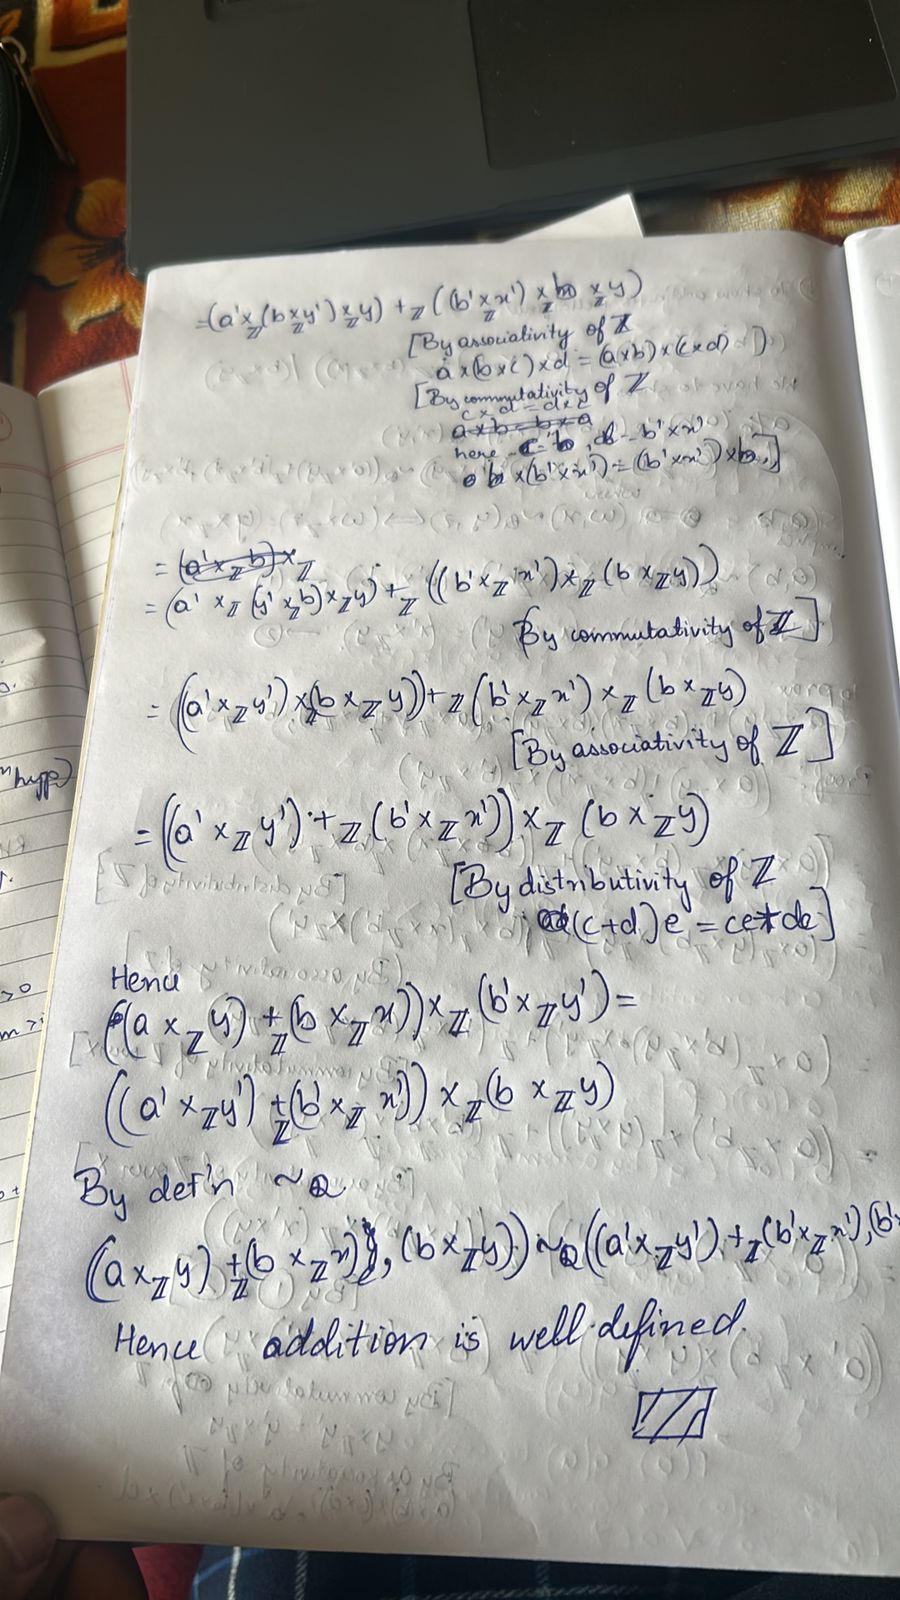 =(a' ×ℤ (b ×ℤ y') ×ℤ y) +ℤ ((b' ×ℤ x') ×ℤ b ×ℤ y)
[By associativity of ℤ
a×(b×c)×d = (a×b)×(c×d) ]
[By commutativity of ℤ
c×d = d×c
a×b = b×a
here c = b, d = b'×x'
b×(b'×x') = (b'×x')×b]
= (a' ×ℤ b) ×ℤ
= (a' ×ℤ (y' ×ℤ b) ×ℤ y) +ℤ ((b' ×ℤ x') ×ℤ (b ×ℤ y))
By commutativity of ℤ]
= ((a' ×ℤ y') ×ℤ (b ×ℤ y)) +ℤ (b' ×ℤ x') ×ℤ (b ×ℤ y)
[By associativity of ℤ]
= ((a' ×ℤ y') +ℤ (b' ×ℤ x')) ×ℤ (b ×ℤ y)
[By distributivity of ℤ
(c+d)e = ce+de]
Hence
((a ×ℤ y) +ℤ (b ×ℤ x)) ×ℤ (b' ×ℤ y') =
((a' ×ℤ y') +ℤ (b' ×ℤ x')) ×ℤ (b ×ℤ y)
By def'n ~Q
((a ×ℤ y) +ℤ (b ×ℤ x), (b ×ℤ y)) ~Q ((a' ×ℤ y') +ℤ (b' ×ℤ x'), (b'
Hence addition is well-defined.
hype)
>0